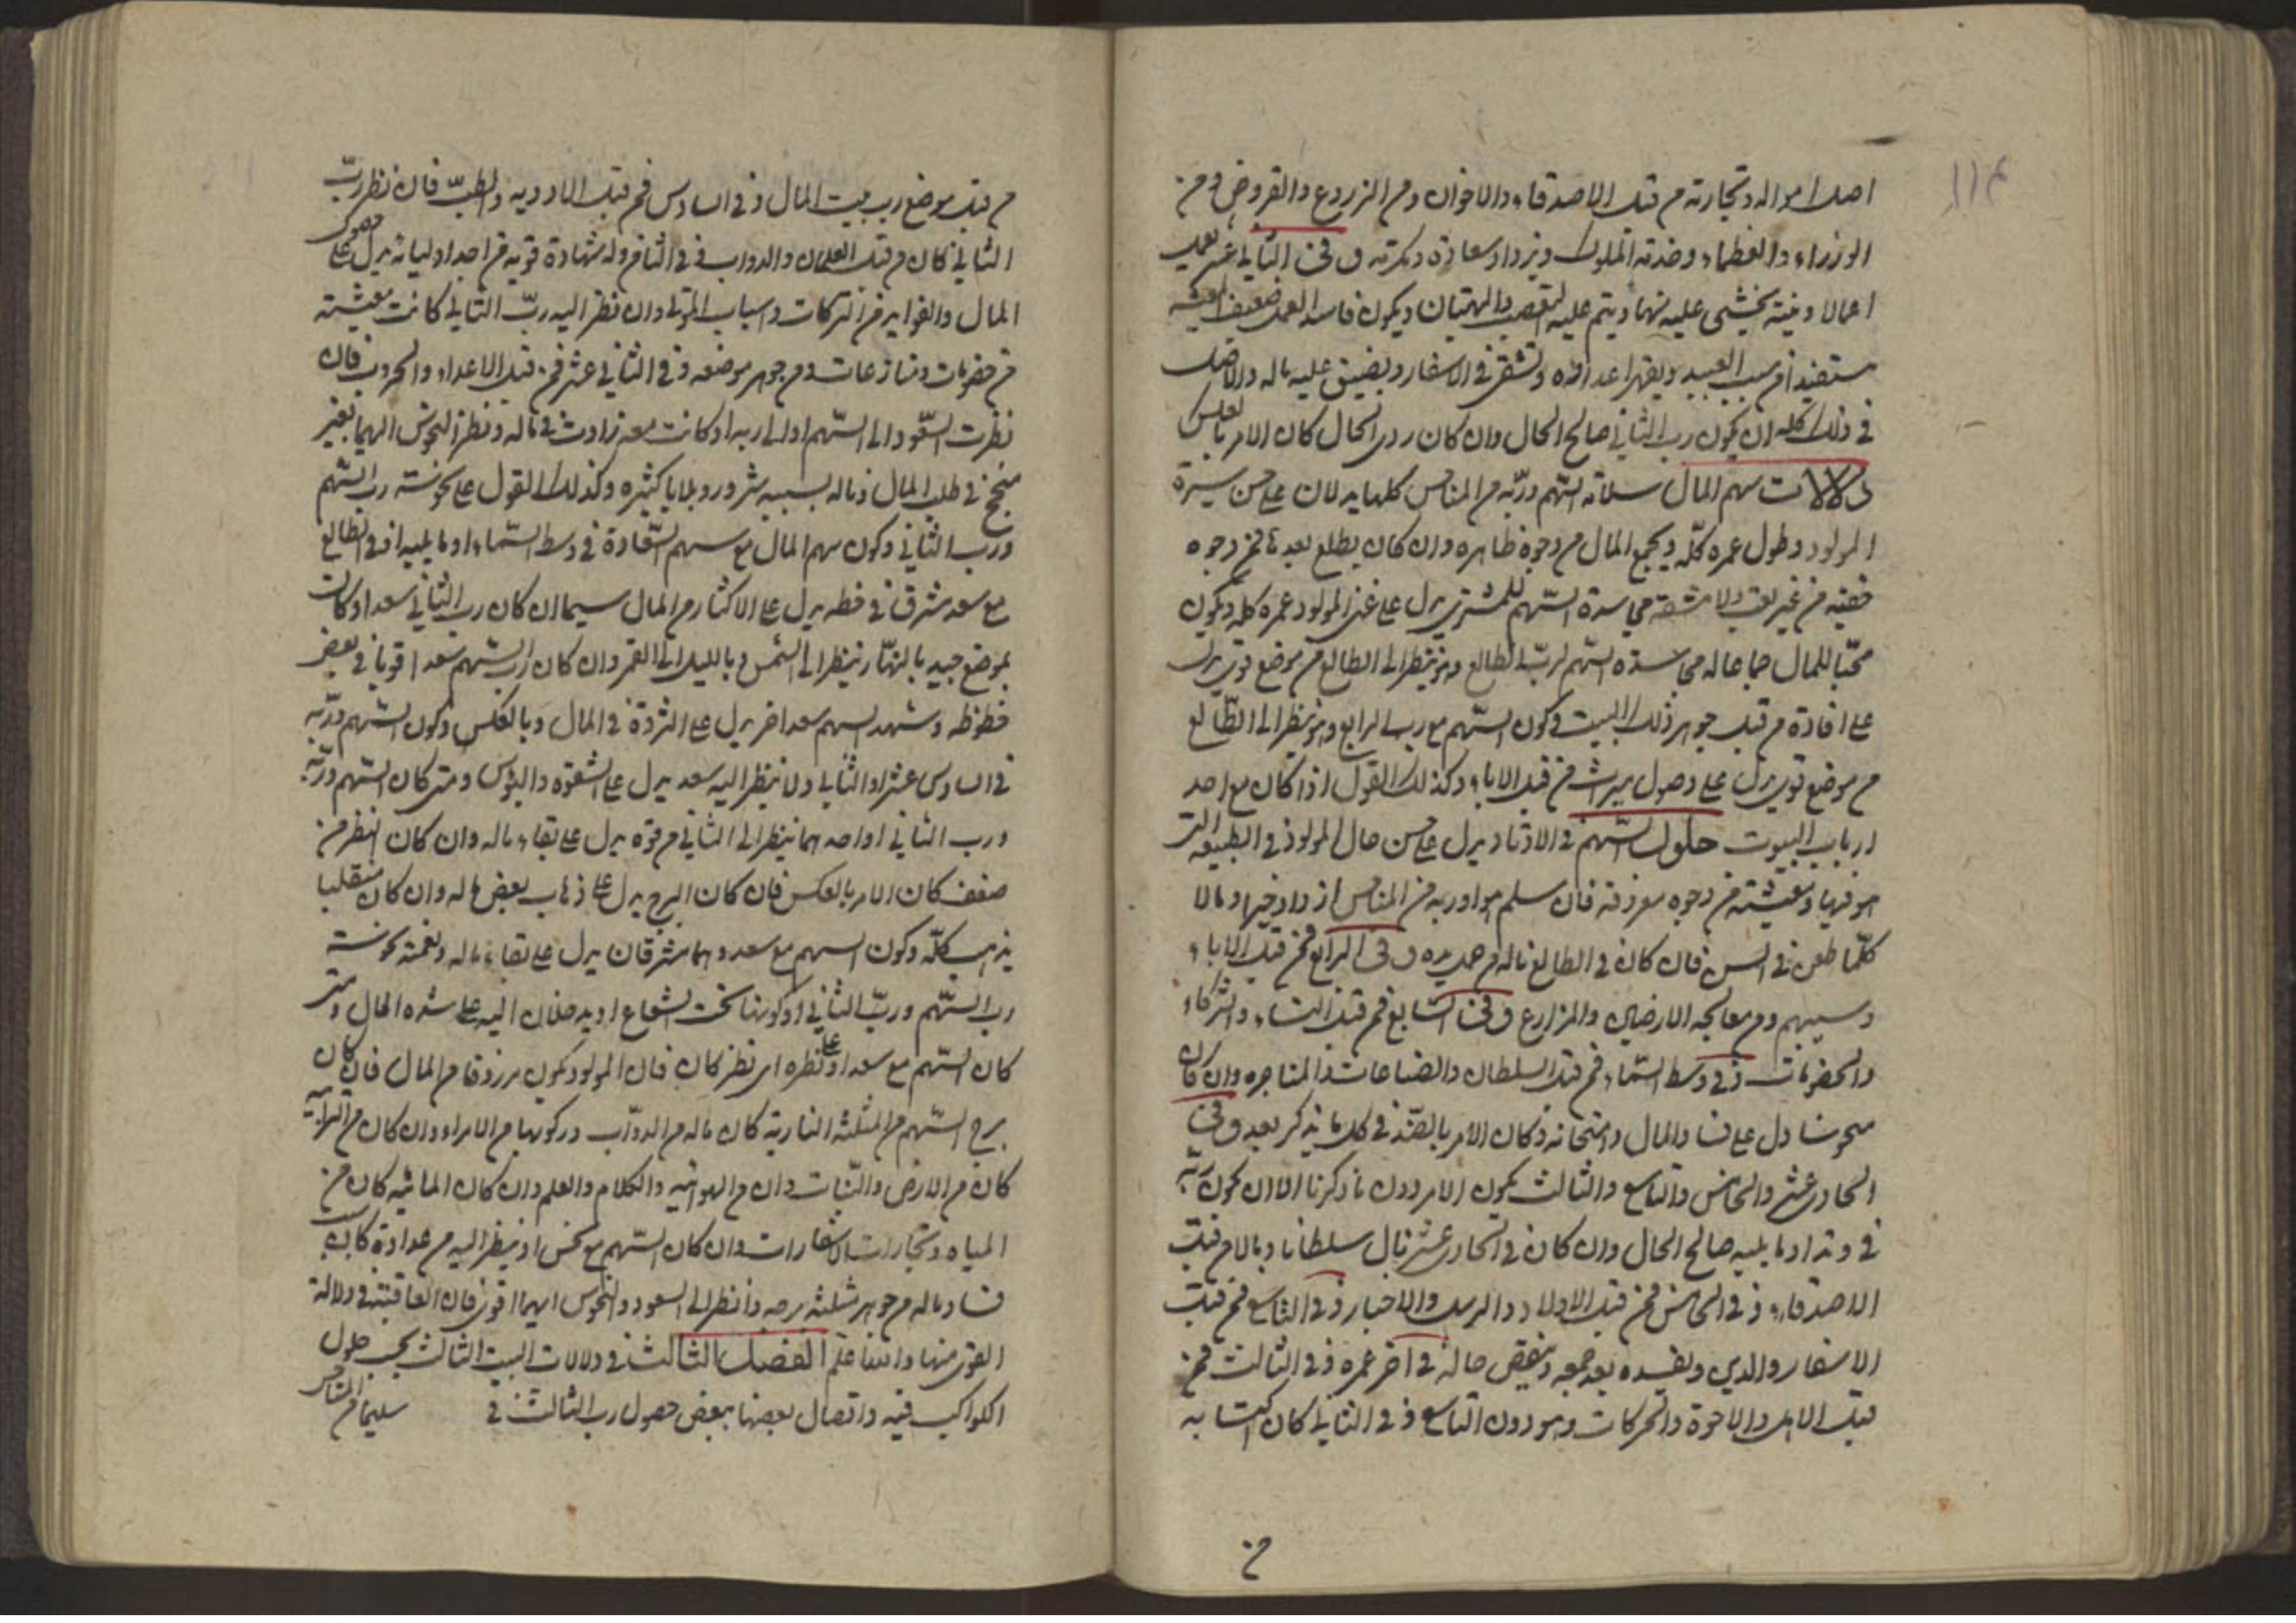 ١١٤
اصل امواله وتجارته من قبل الاصدقاء والاخوان ومن الزروع والقروض ومن
الوزراء والعظماء وخدمة الملوك ويزداد سعادة وكرتة وفى الثانى عشر يعمل
اعمالا دنية يخشى عليه منها ويتم عليه والبهتان ويكون فاسد العمل ضعيف المعيشة
مستفيدا من سبب العبيد ويقهر اعداؤه وتشقى فى الاسفار ويضيق عليه ماله والاصل
فى ذلك كله ان يكون رب الثانى صالح الحال وان كان ردى الحال كان الامر بالعكس
دلالات سهم المال سلامة السهم وربه من المناحس كلها يدلان على حسن سيرة
المولود وطول عمره كله ويجمع المال من وجوه ظاهره وان كان يطلع بعد فمن وجوه
خفية من غير تعب ولا مشقة محاسدة السهم للمشترى يدل على غنى المولود عمره كله ويكون
محبا للمال جماعا له محاسدة السهم لرب الطالع وهو ينظر الى الطالع من موضع قوى يدل
على افادة من قبل جوهر ذلك البيت وكون السهم مع رب الرابع وهو ينظر الى الطالع
من موضع قوى يدل على وصول ميراث من قبل الاباء وكذلك القول اذا كان مع احد
ارباب البيوت حلول السهم فى الاوتاد يدل على حسن حال المولود فى الطبيعة التى
هو فيها ومعيشته من وجوه معروفة فان سلم هو او ربه من المناحس ازداد خيرا ومالا
كلما طعن فى السن فان كان فى الطالع ناله من عمل يده وفى الرابع فمن قبل الاباء
وسببهم ومن معالجة الارضين والمزارع وفى السابع فمن قبل النساء والشركاء
والخصومات وفى وسط السماء فمن قبل السلطان والصناعات والمتاجره وان كان
منحوسا دل على فساد المال وامتحانه وكان الامر بالضد فى كل ما يذكر بعد وفى
الحادى عشر والخامس والتاسع والثالث يكون الامر دون ما ذكرنا الا ان يكون ربه
فى وتد او ما يليه صالح الحال وان كان فى الحادى عشر نال سلطانا ومالا من قبل
الاصدقاء وفى الخامس فمن قبل الاولاد والرسل والاخبار وفى التاسع فمن قبل
الاسفار والدين ويفسده بعد جمعه وينقص حاله فى اخر عمره وفى الثالث فمن
قبل الاهل والاخوة والحركات وهو دون التاسع وفى الثانى كان اكتسابه
من
من قبل موضع رب بيت المال وفى السادس فمن قبل الادوية والطب فان نظر رب
الثانى كان من قبل الغلمان والدواب وفى الثامن وله شهادة قوية من احد اوليائه يدل على حصول
المال والفوايد من التركات واسباب الموتى وان نظر اليه رب الثانى كانت معيشته
من خصومات ومنازعات ومن جوهر موضعه وفى الثانى عشر فمن قبل الاعداء والحروب فان
نظرت السعود الى السهم او الى ربه او كانت معه زادت فى ماله ونظر النحوس اليهما بغير
منجح فى طلب المال وناله بسببه شرور وبلايا كثيره وكذلك القول على نحوسة رب السهم
ورب الثانى وكون سهم المال مع سهم السعادة فى وسط السماء او ما يليه او فى الطالع
مع سعد مشرق فى حظه يدل على الاكثار من المال سيما ان كان رب الثانى سعدا وكان
بموضع جيد بالنهار ينظر الى الشمس وبالليل الى القمر وان كان رب السهم سعدا قويا فى بعض
حظوظه وشهد السهم سعد اخر يدل على الثروة فى المال وبالعكس وكون السهم وربه
فى السادس عشر او الثانى ولا ينظر اليه سعد يدل على الشقوة والبؤس ومتى كان السهم وربه
ورب الثانى او احدهما ينظر الى الثانى من قوة يدل على بقاء ماله وان كان النظر من
ضعف كان الامر بالعكس فان كان البرج يدل على ذهاب بعض ماله وان كان منقلبا
يذهب كله وكون السهم مع سعد وهما مشرقان يدل على بقاء ماله ونعمته نحوسة
رب السهم ورب الثانى وكونهما تحت الشعاع او يدخلان اليه على شدة الحال ومتى
كان السهم مع سعد او على نظره اى نظر كان فان المولود يكون مرزوقا من المال فان كان
برج السهم من المثلثة النارية كان ماله من الدواب وركوبها من الامراء وان كان من الترابية
كان من الارض والنبات وان من الهوائية والكلام والعلم وان كان المائية كان من
المياه وتجارات الاسفار وان كان السهم مع نحس او ينظر اليه من عداوة كان سبب
فساد ماله من جوهر مثلثة برجه وانظر الى السعود والنحوس ايهما اقوى فان العاقبة فى دلالة
القوى منها والله اعلم الفصل الثالث فى دلالات البيت الثالث بحسب حلول
الكواكب فيه واتصال بعضها ببعض حصول رب الثالث فى سليما من المناحس